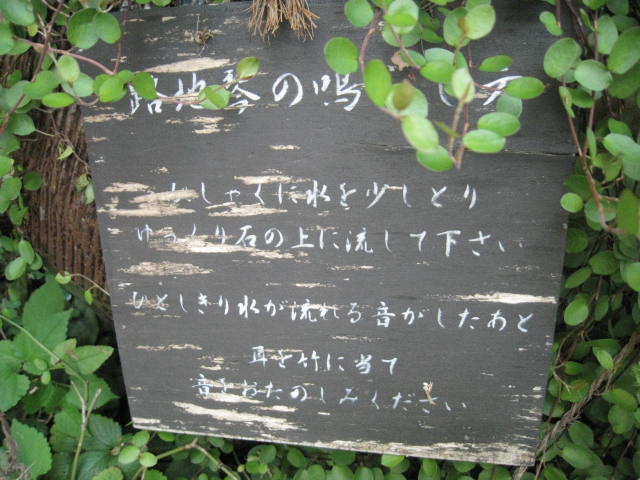 路地琴の鳴らし方
ひしゃくに水を少しとり
ゆっくり石の上に流して下さい
ひとしきり水が流れる音がしたあと
耳を竹に当て
音をおたのしみください